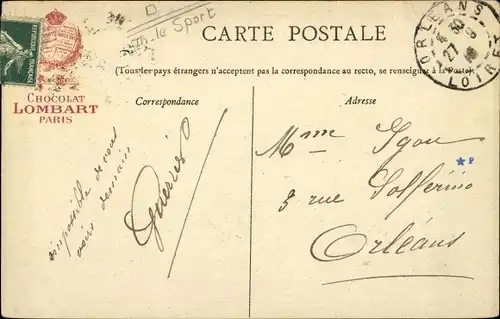 le Sport
CARTE POSTALE
ORLEANS
LOIRET
27
REPUBLIQUE FRANÇAISE
(Tous les pays étrangers n'acceptent pas la correspondance au recto, se renseigner à la Poste)
CHOCOLAT
LOMBART
PARIS
Correspondance
impossible de vous
voir demain
Guerrier
Adresse
Mme Igou
3 rue Solferino
Orléans
P.